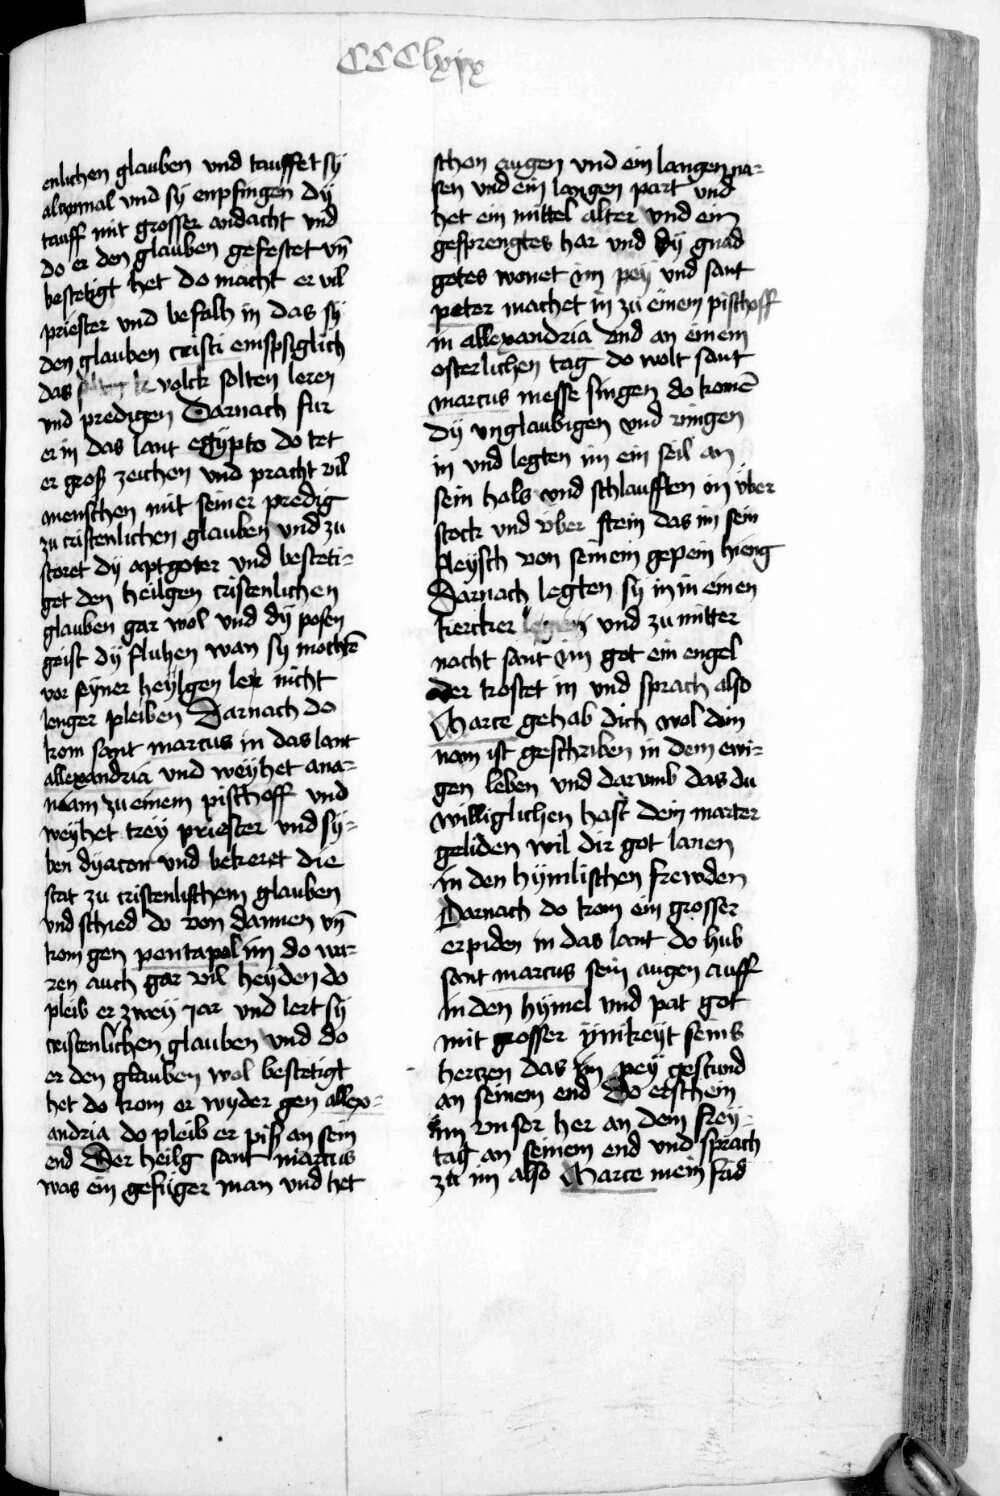 CCClxix
enlichen glauben vnd tauffet sÿ
alczumal vnd sÿ enpfingen dÿ
tauff mit grosser andacht vnd
do er den glauben gefestet vn̄
bestetigt het do macht er vil
priester vnd befalh in das sÿ
den glauben cristi emspsiglich
das volck solten leren
vnd predigen Darnach fur
er in das lant egÿpto do tet
er groß zeichen vnd pracht vil
menschen mit seiner predig
zu cristenlichen glauben vnd zu
storet dÿ aptgoter vnd besteti-
get den heilgen cristenlichen
glauben gar wol vnd dÿ posen
geist dÿ fluhen wan sÿ mochtē
vor seyner heÿlgen ler nicht
lenger pleiben Darnach do
kom sant marcus in das lant
allexandria vnd weÿhet ana-
niam zu einem pischoff vnd
weÿhet treÿ priester vnd sÿ-
ben dÿacon vnd bekeret die
stat zu cristenlischem glauben
vnd schied do von dannen vn̄
kom gen pentapolim do wa-
ren auch gar vil heÿden do
pleib er zweÿ Jar vnd lert sÿ
cristenlichen glauben vnd do
er den glauben wol bestetigt
het do kom er wyder gen allex-
andria do pleib er piß an sein
end Der heilg sant marcus
was ein gefüger man vnd het
schon augen vnd ein langen na-
sen vnd ein langen part vnd
het ein mittel alter vnd ein
gesprengtes har vnd dÿ gnad
gotes wonet im peÿ vnd sant
peter machet in zu einem pischoff
in allexandria vnd an einem
osterlichen tag do wolt sant
marcus messe singen do komē
dÿ vnglaubigen vnd vingen
in vnd legten im ein seil an
sein hals vnd schlaufften in vber
stock vnd vber stein das im sein
fleÿsch von seinem gepein hieng
Darnach legten sÿ in in einen
kercker vnd zu mitter
nacht sant im got ein engel
der trostet in vnd sprach also
Marce gehab dich wol dein
nam ist geschriben in dem ewi-
gen leben vnd dar vmb das du
williglichen hast dein marter
geliden wil dir got lanen
in den hÿmlischen frewden
Darnach do kom ein grosser
erpiden in das lant do hub
sant marcus sein augen auff
in den hÿmel vnd pat got
mit grosser ÿnikeÿt seins
hertzen das im peÿ gestund
an seinem end Do erschein
im vnser her an dem freÿ-
tag an seinem end vnd sprach
zu im also Marce mein frid